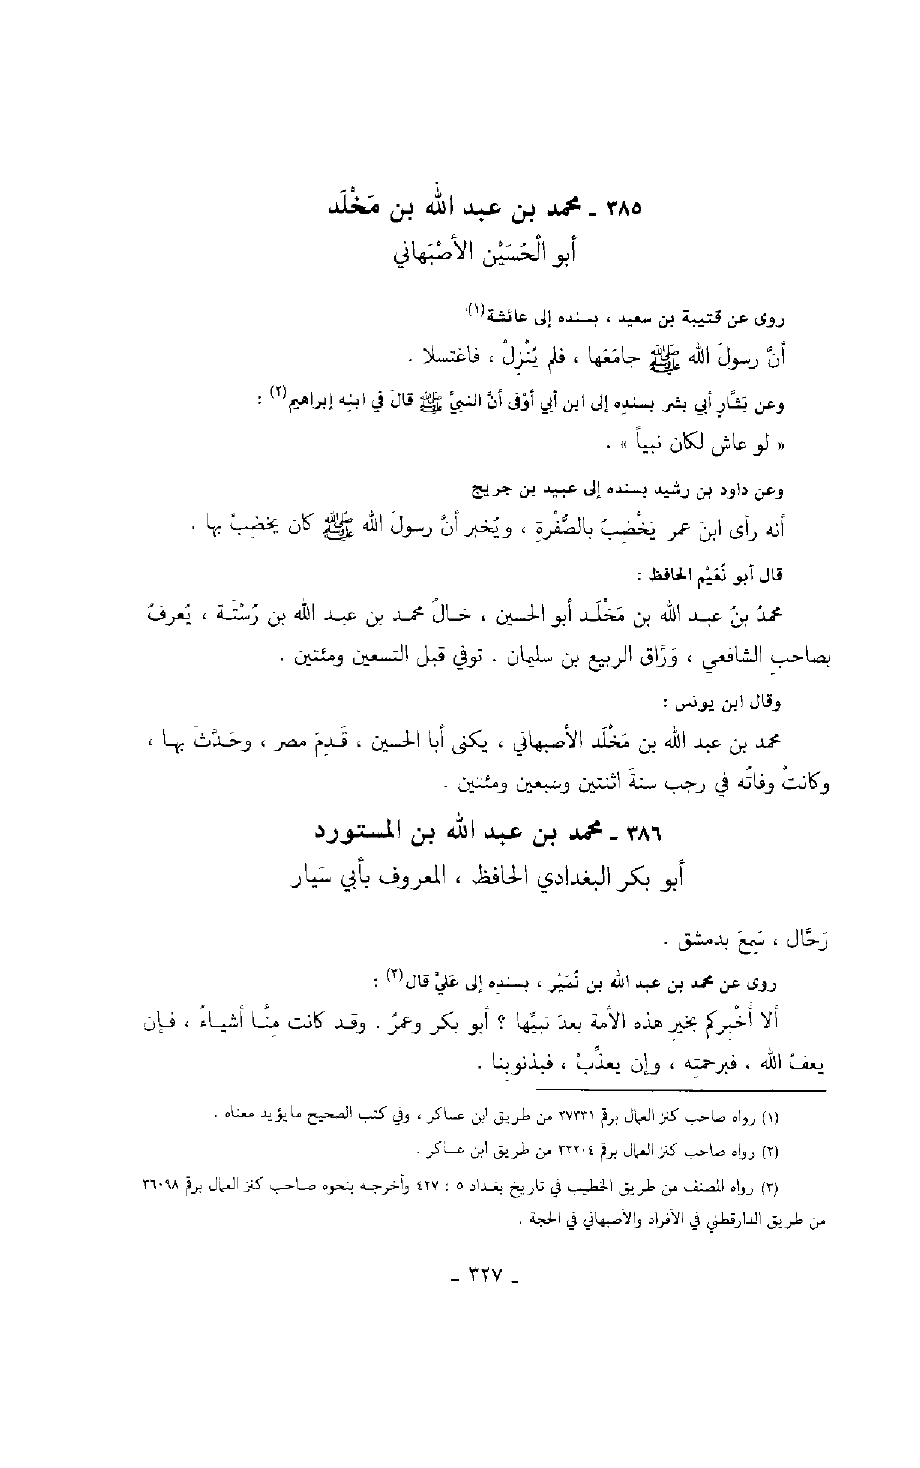 ٣٨٥ ـ محمد بن عبد الله بن مَخْلَد
أبو الْحُسَيْن الأصْبَهاني
روى عن قتيبة بن سعيد ، بسنده إلى عائشة(١)
أنَّ رسولَ الله ﷺ جامَعَها ، فلم يُنْزِلْ ، فاغتسلا .
وعن بَشَّارِ أبي بشر بسنده إلى ابن أبي أوْفى أنَّ النبيَّ ﷺ قالَ في ابنِه إبراهيم(٢) :
« لو عاش لكان نبياً » .
وعن داود بن رشيد بسنده إلى عبيد بن جريج
أنه رأى ابنَ عمر يَخْضِبُ بالصُّفْرةِ ، ويُخبر أنَّ رسولَ الله ﷺ كان يخضِبُ بها .
قال أبو نُعَيْم الحافظ :
محمدُ بنُ عبد الله بن مَخْلَد أبو الحسين ، خالُ محمد بن عبد الله بن رُسْتَة ، يُعرفُ
بصاحبِ الشافعي ، وَرَّاق الربيع بن سليمان . توفي قبل التسعين ومئتين .
وقال ابن يونس :
محمد بن عبد الله بن مَخْلَد الأصبهاني ، يكنى أبا الحسين ، قَدِمَ مصر ، وحَدَّثَ بها ،
وكانتْ وفاتُه في رجب سنةَ اثنتين وسبعين ومئتين .
٣٨٦ ـ محمد بن عبد الله بن المستورد
أبو بكر البغدادي الحافظ ، المعروف بأبي سَيار
رَحَّال ، سَمِعَ بدمشق .
روى عن محمد بن عبد الله بن نُمَيْر ، بسنده إلى عَليٍّ قال(٣) :
ألا أخْبِركم بخيرِ هذه الأمة بعدَ نبيِّها ؟ أبو بكر وعمرُ . وقد كانت مِنَّا أشياءُ ، فإن
يعفُ الله ، فبرحمتِه ، وإن يعذِّبْ ، فبذنوبنا .
(١) رواه صاحب كنز العمال برقم ٢٧٣٣١ من طريق ابن عساكر ، وفي كتب الصحيح ما يؤيد معناه .
(٢) رواه صاحب كنز العمال برقم ٣٢٢٠٤ من طريق ابن عساكر .
(٣) رواه المصنف من طريق الخطيب في تاريخ بغداد ٥ : ٤٢٧ وأخرجه بنحوه صاحب كنز العمال برقم ٣٦٠٩٨
من طريق الدارقطني في الأفراد والأصبهاني في الحجة .
ـ ٣٢٧ ـ